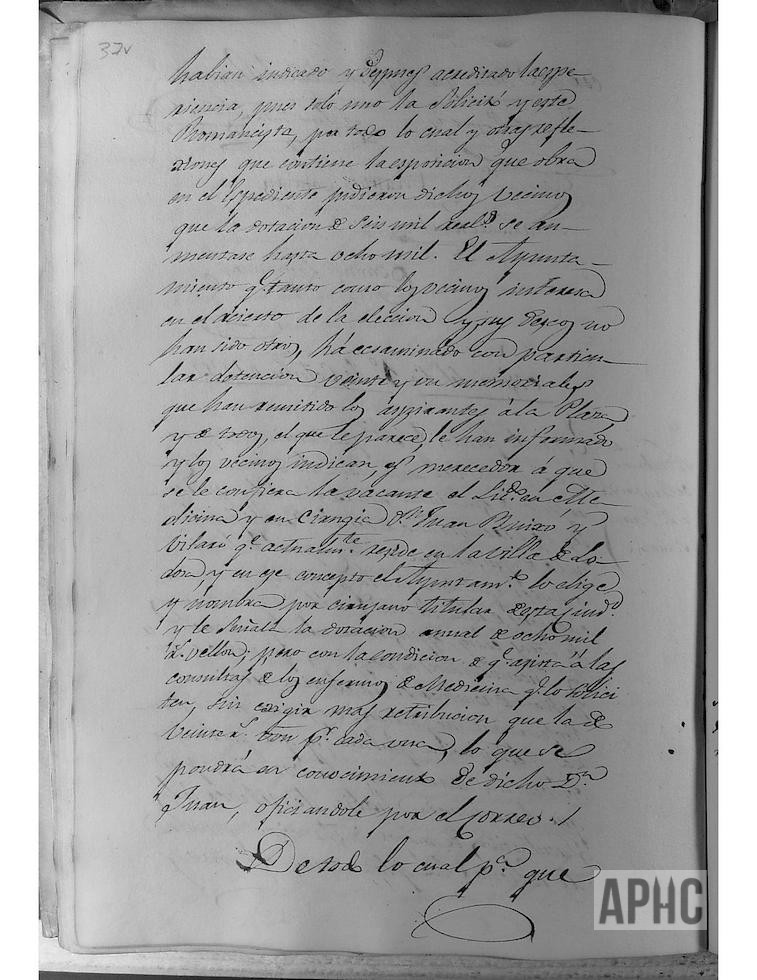 37v
habian indicado y despues acreditado la espe
riencia, pues solo uno la solicitó y este
Romancista, por todo lo cual y otras refle-
xiones que contiene la esposicion que obra
en el Espediente pidieron dichos vecinos
que la dotacion de seis mil reals. se au-
mentase hasta ocho mil. El Ayunta-
miento qe. tanto como los vecinos interesa
en el acierto de la eleccion y sus deseos no
han sido otros, há ecsaminado con particu-
lar detencion veinte y un memoriales
que han remitido los aspirantes á la Plaza
y de todos, el que le parece, le han informado
y los vecinos indican es merecedor á que
se le confiera la vacante el Licdo. en Me-
dicina y en Cirugia Dn. Juan Buixo y
Vilaró qe. actualmte. reside en la villa de Lo-
dosa, y en ese concepto el Ayuntamto. lo elige
y nombra por cirujano titular de esta Ciudd.
y le señala la dotacion anual de ocho mil
rs. vellon; pero con la condicion de qe. asista á las
consultas de los enfermos de Medicina qe. lo solici
ten, sin exigir mas retribucion que la de
veinte rs. von. pr. cada una, lo que se
pondrá en conocimiento de dicho Dn.
Juan, oficiandole por el Correo./
De todo lo cual pa. que
APHC